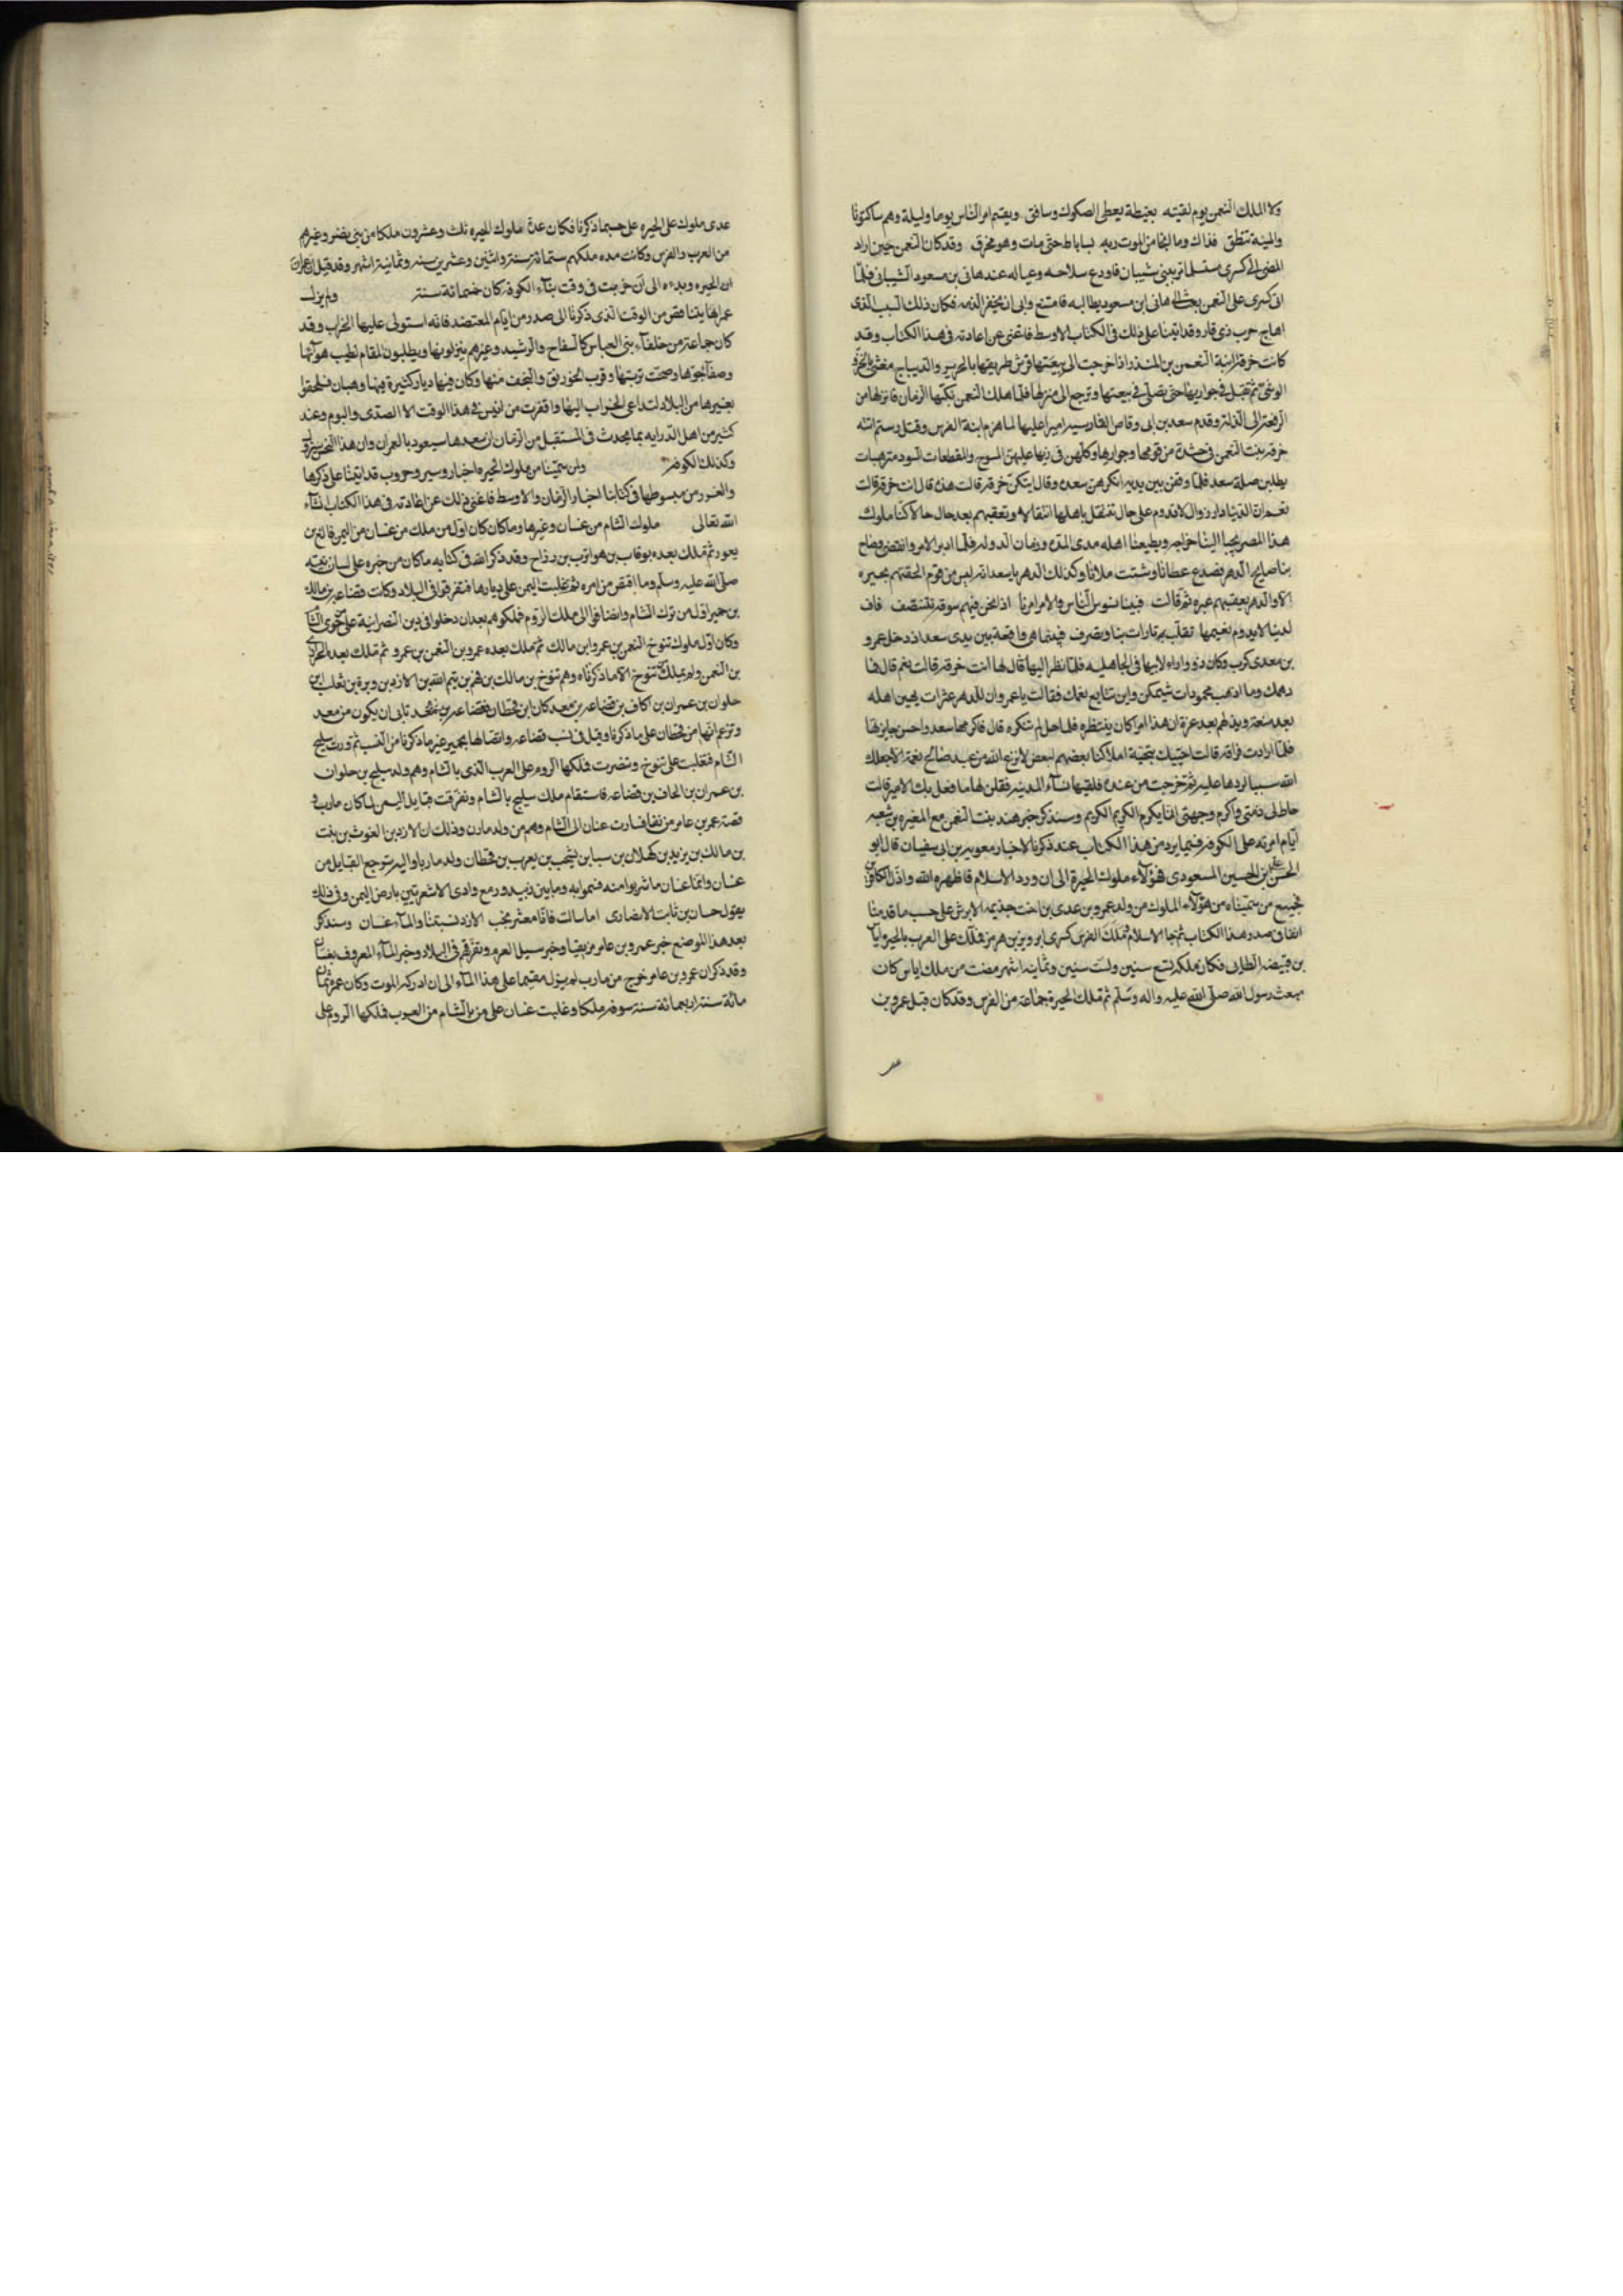 ولا الملك النعمن يوم لقيته بغبطة يعطى الصكوك وسافق ويقسم امر الناس يوما وليلة وهم ساكتونا
والمنية تنطق فذاك وما انجا من الموت ربه بساباط حتى مات وهو محرق وقد كان النعمن حين اراد
المضى الى كسرى مستسلما مر ببنى شيبان فاودع سلاحه وعياله عند هانى بن مسعود الشيبانى فلما
اتى كسرى على النعمن بعث الى هانى ابن مسعود يطالبه فامتنع وابى ان يخفر الذمه فكان ذلك السبب الذى
اهاج حرب ذى قار وقد اتينا على ذلك فى الكتاب الاوسط فاغنى عن اعادته فى هذا الكتاب وقد
كانت خرقة ابنة النعمن بن المنذر اذا خرجت الى بيعتها فرش طريقها بالحرير والديباج مغشى بالخز و
الوشى ثم تقبل فى جواريها حتى تصل فى بيعتها وترجع الى منزلها فلما هلك النعمن نكبها الزمان فانزلها من
الرفعة الى الذلة وقدم سعد بن ابى وقاص القادسيه اميرا عليها لما هزم الله الفرس وقتل رستم اتته
خرقة بنت النعمن فى حفدة من قومها وجواريها وكلهن فى زيها عليهن المسوح والمقطعات السود مترهبات
يطلبن صلة سعد فلما وقفن بين يديه انكرهن سعد وقال ايتكن خرقة قالت هذه قال انت خرقة قالت
نعم ان الدنيا دار زوال لا تدوم على حال تنتقل باهلها انتقالا وتعقبهم بعد حال حالا كنا ملوك
هذا المصر يجبا الينا خراجه ويطيعنا اهله مدى المده وزمان الدوله فلما ادبر الامر وانقضى وصاح
بنا صايح الدهر فصدع عصانا وشتت ملأنا وكذلك الدهر يا سعد انه ليس من قوم الحقتهم بحبره
الا والدهر يعقبهم عبره ثم قالت فبينا نسوس الناس والامر امرنا اذا نحن فيهم سوقة نتنصف فاف
لدنيا لا يدوم نعيمها تقلب بنا تارات بنا وتصرف فبينما هى واقفة بين يدى سعد اذ دخل عمرو
بن معدى كرب وكان زوارا لابيها فى الجاهليه فلما نظر اليها قال لها انت خرقة قالت نعم قال فما
دهمك وما اذهب بجودات شيمتك واين تتابع نعمك فقالت يا عمرو ان للدهر عثرات
بعد منعة ويذلهم بعد عزة ان هذا امر كان ينتظره فلما حل لم ننكره قال فاكرمها سعد واحسن جايزتها
فلما ارادت فراقه قالت احييك بتحية املاكنا بعضهم لبعض لا نزع الله من عبد صالح نعمة الا جعلك
الله سببا لردها عليه ثم خرجت من عنده فلقيها نساء المدينه فقلن لها ما فعل بك الامير قالت
حاط لى ذمتى واكرم وجهى انما يكرم الكريم الكريم وسنذكر خبر هند بنت النعمن مع المغيره بن شعبه
ايام امرته على الكوفه فيما يرد من هذا الكتاب عند ذكرنا لاخبار معويه بن ابى سفيان قال ابو
الحسن على بن الحسين المسعودى فهؤلاء ملوك الحيرة الى ان ورد الاسلام فاظهره الله واذل الكافرين
فجميع من سميناه من هؤلاء الملوك من ولد عمرو بن عدى بن اخت جذيمه الابرش على حسب ما قدمنا
انفا فى صدر هذا الكتاب ثم جا الاسلام وملك الفرس كسرى ابرويز بن هرمز فملك على العرب بالحيره اياس
بن قبيصه الطائى فكان ملكه تسع سنين ولست سنين وثمانيه اشهر مضت من ملك اياس كان
مبعث رسول الله صلى الله عليه واله وسلم ثم ملك الحيرة جماعة من الفرس وقد كان قبل عمرو بن
عدى ملوك على الحيره على حسب ما ذكرنا فكان عدة ملوك الحيره ثلث وعشرون ملكا من بنى نصر وغيرهم
من العرب والفرس وكانت مده ملكهم ستمائة سنة واثنين وعشرين سنه وثمانية اشهر وقد قيل ان عمران
ان الحيره وبدءه الى ان خربت فى وقت بناء الكوفه كان خمسمائة سنة ولم يزل
عمرانها يتناقص من الوقت الذى ذكرنا الى صدر من ايام المعتضد فانه استولى عليها الخراب وقد
كان جماعة من خلفاء بنى العباس كالسفاح والرشيد وغيرهم ينزلونها ويطلبون المقام لطيب هوائها
وصفاء جوها وصحت تربتها وقرب الخورنق والنجف منها وكان فيها ديار كثيرة فيها رهبان فلحقوا
بغيرها من البلاد لتداعى الخراب اليها واقفرت من انيس فى هذا الوقت الا الصدى والبوم وعند
كثير من اهل الدرايه بما يحدث فى المستقبل من الزمان ان سعدها سيعود بالعمران وان هذا النحس سيزول
وكذلك الكوفة ولمن سمينا من ملوك الحيره اخبار وسير وحروب قد اتينا على ذكرها
والغرر من مبسوطها فى كتابنا اخبار الزمان والاوسط فاغنى ذلك عن اعادته فى هذا الكتاب انشاء
الله تعالى ملوك الشام من غسان وغيرها وما كان كان اول من ملك من غسان من اليمن فالغ بن
يعور ثم ملك بعده يوناب بن هو ايوب بن رزاح وقد ذكر الله فى كتابه ما كان من خبره على لسان نبيه
صلى الله عليه وسلم وما اقتص من امره ثم غلبت اليمن على ديارها فتفرقوا فى البلاد وكانت قضاعه بن مالك
بن حمير اول من نزل الشام وانضافوا الى ملك الروم فملكوهم بعد ان دخلوا فى دين النصرانية على من حوى الشام
وكان اول ملوك تنوخ النعمن بن عمرو ابن مالك ثم ملك بعده عمرو بن النعمن بن عمرو ثم ملك بعده الحوارى
بن النعمن ولم يملك تنوخ الا ما ذكرناه وهم تنوخ بن مالك بن فهم بن تيم الله بن الازد بن وبرة بن ثعلب ابن
حلوان بن عمران بن الحاف بن قضاعه بن معد كان ابن قحطان فقضاعه تابى ان يكون من معد
وتزعم انها من قحطان على ما ذكرنا وقيل فى نسب قضاعه واتصالها بحمير غير ما ذكرنا من النسب ثم وردت سليح
الشام فغلبت على تنوخ وتنصرت فملكها الروم على العرب الذى بالشام وهم ولد سليح بن حلوان
بن عمران بن الحاف بن قضاعه فاستقام ملك سليح بالشام وتفرقت قبايل اليمن لما كان مارب و
قصة عمر بن عامر مزيقيا فسارت غسان الى الشام وهم من ولد مازن وذلك ان الازد بن الغوث بن بنت
بن مالك بن يزيد بن كهلان بن سبا بن يشجب بن يعرب بن قحطان ولد مازنا واليه ترجع القبايل من
غسان وانما غسان ما شربوا منه فسموا به وما بين زبيد ورمع وادى الاشعريين بارض اليمن وفى ذلك
يقول حسان بن ثابت الانصارى اما سالت فانا معشر نجب الازد نسبتنا والماء غسان وسنذكر
بعد هذا الموضع خبر عمرو بن عامر مزيقيا وخبر سيل العرم وتفرقهم فى البلاد وخبر الماء المعروف بغسان
وقد ذكر ان عمرو بن عامر خرج من مارب لم يزل مقيما على هذا الماء الى ان ادركه الموت وكان عمره ثمان
مائة سنة اربعمائة سنة سوقة ملكا وغلبت غسان على من بالشام من العرب فملكها الروم على